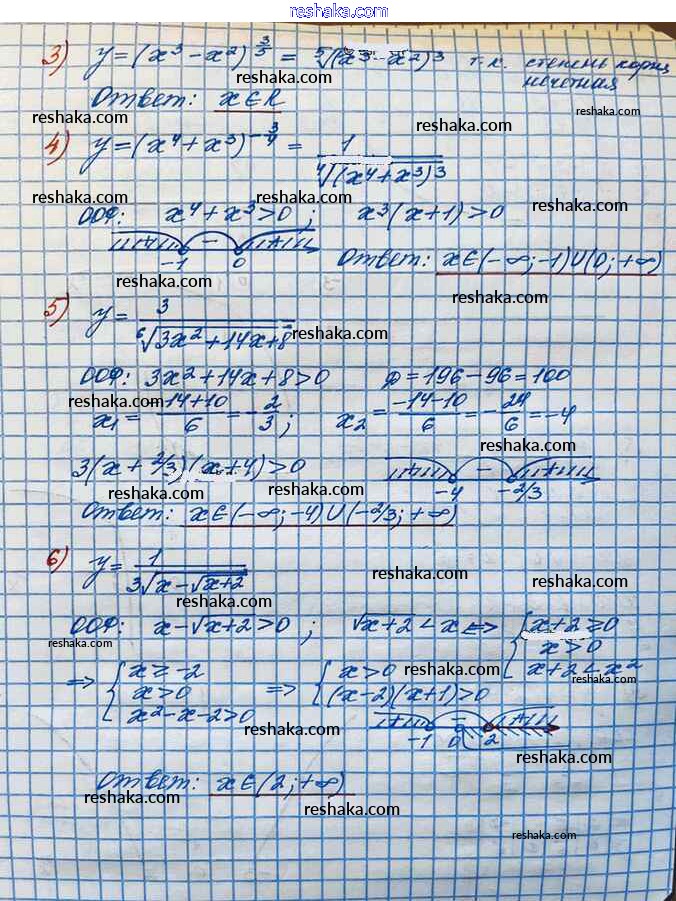 reshaka.com
3) y=(x³-x²)^(3/5) = ⁵√(x³-x²)³ т.к. степень корня
нечетная
Ответ: x∈R
reshaka.com reshaka.com
4) y=(x⁴+x³)^(-3/4) = 1/⁴√(x⁴+x³)³
reshaka.com reshaka.com
ООФ: x⁴+x³>0; x³(x+1)>0
− -1 0
reshaka.com
Ответ: x∈(-∞;-1)∪(0;+∞)
reshaka.com
5) y= 3/⁶√(3x²+14x+8)
reshaka.com
ООФ: 3x²+14x+8>0 D=196-96=100
reshaka.com
x₁= (-14+10)/6 = -2/3; x₂= (-14-10)/6 = -24/6 = -4
reshaka.com
3(x+2/3)(x+4)>0 − -4 -2/3
reshaka.com reshaka.com
Ответ: x∈(-∞;-4)∪(-2/3;+∞)
6) y= 1/3√(x-√(x+2))
reshaka.com reshaka.com
reshaka.com
ООФ: x-√(x+2)>0; √(x+2)<x ⇔ { x+2≥0
x>0
x+2<x²
reshaka.com reshaka.com
⇒ { x≥-2
x>0
x²-x-2>0
⇒ { x>0
(x-2)(x+1)>0
reshaka.com
− -1 0 2
Ответ: x∈(2;+∞)
reshaka.com reshaka.com
reshaka.com
reshaka.com